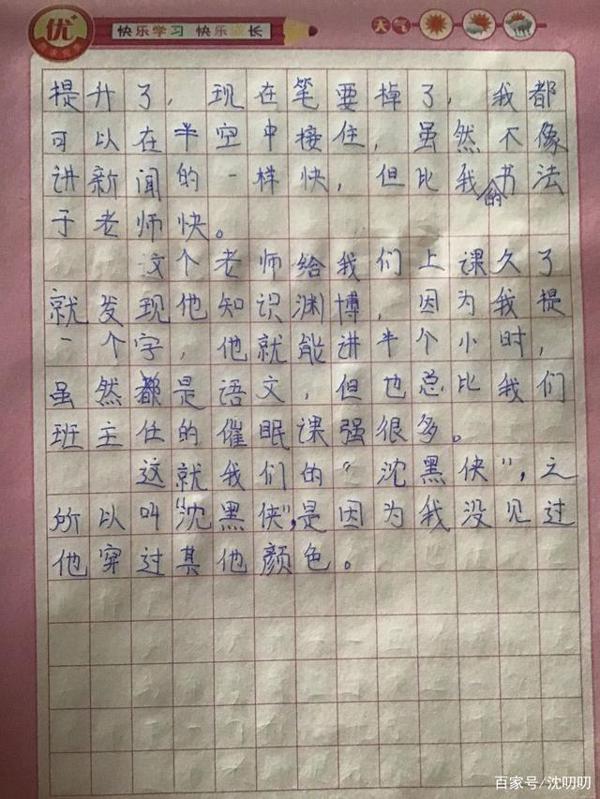 优
快乐学习 快乐成长
天气
提升了，现在笔要掉了，我都
可以在半空中接住，虽然不像
讲新闻的一样快，但比我的书法
于老师快。
这个老师给我们上课久了
就发现他知识渊博，因为我提
一个字，他就能讲半个小时，
虽然都是语文，但也总比我们
班主任的催眠课强很多。
这就我们的“沈黑侠”，之
所以叫“沈黑侠”，是因为我没见过
他穿过其他颜色。
百家号/沈叨叨